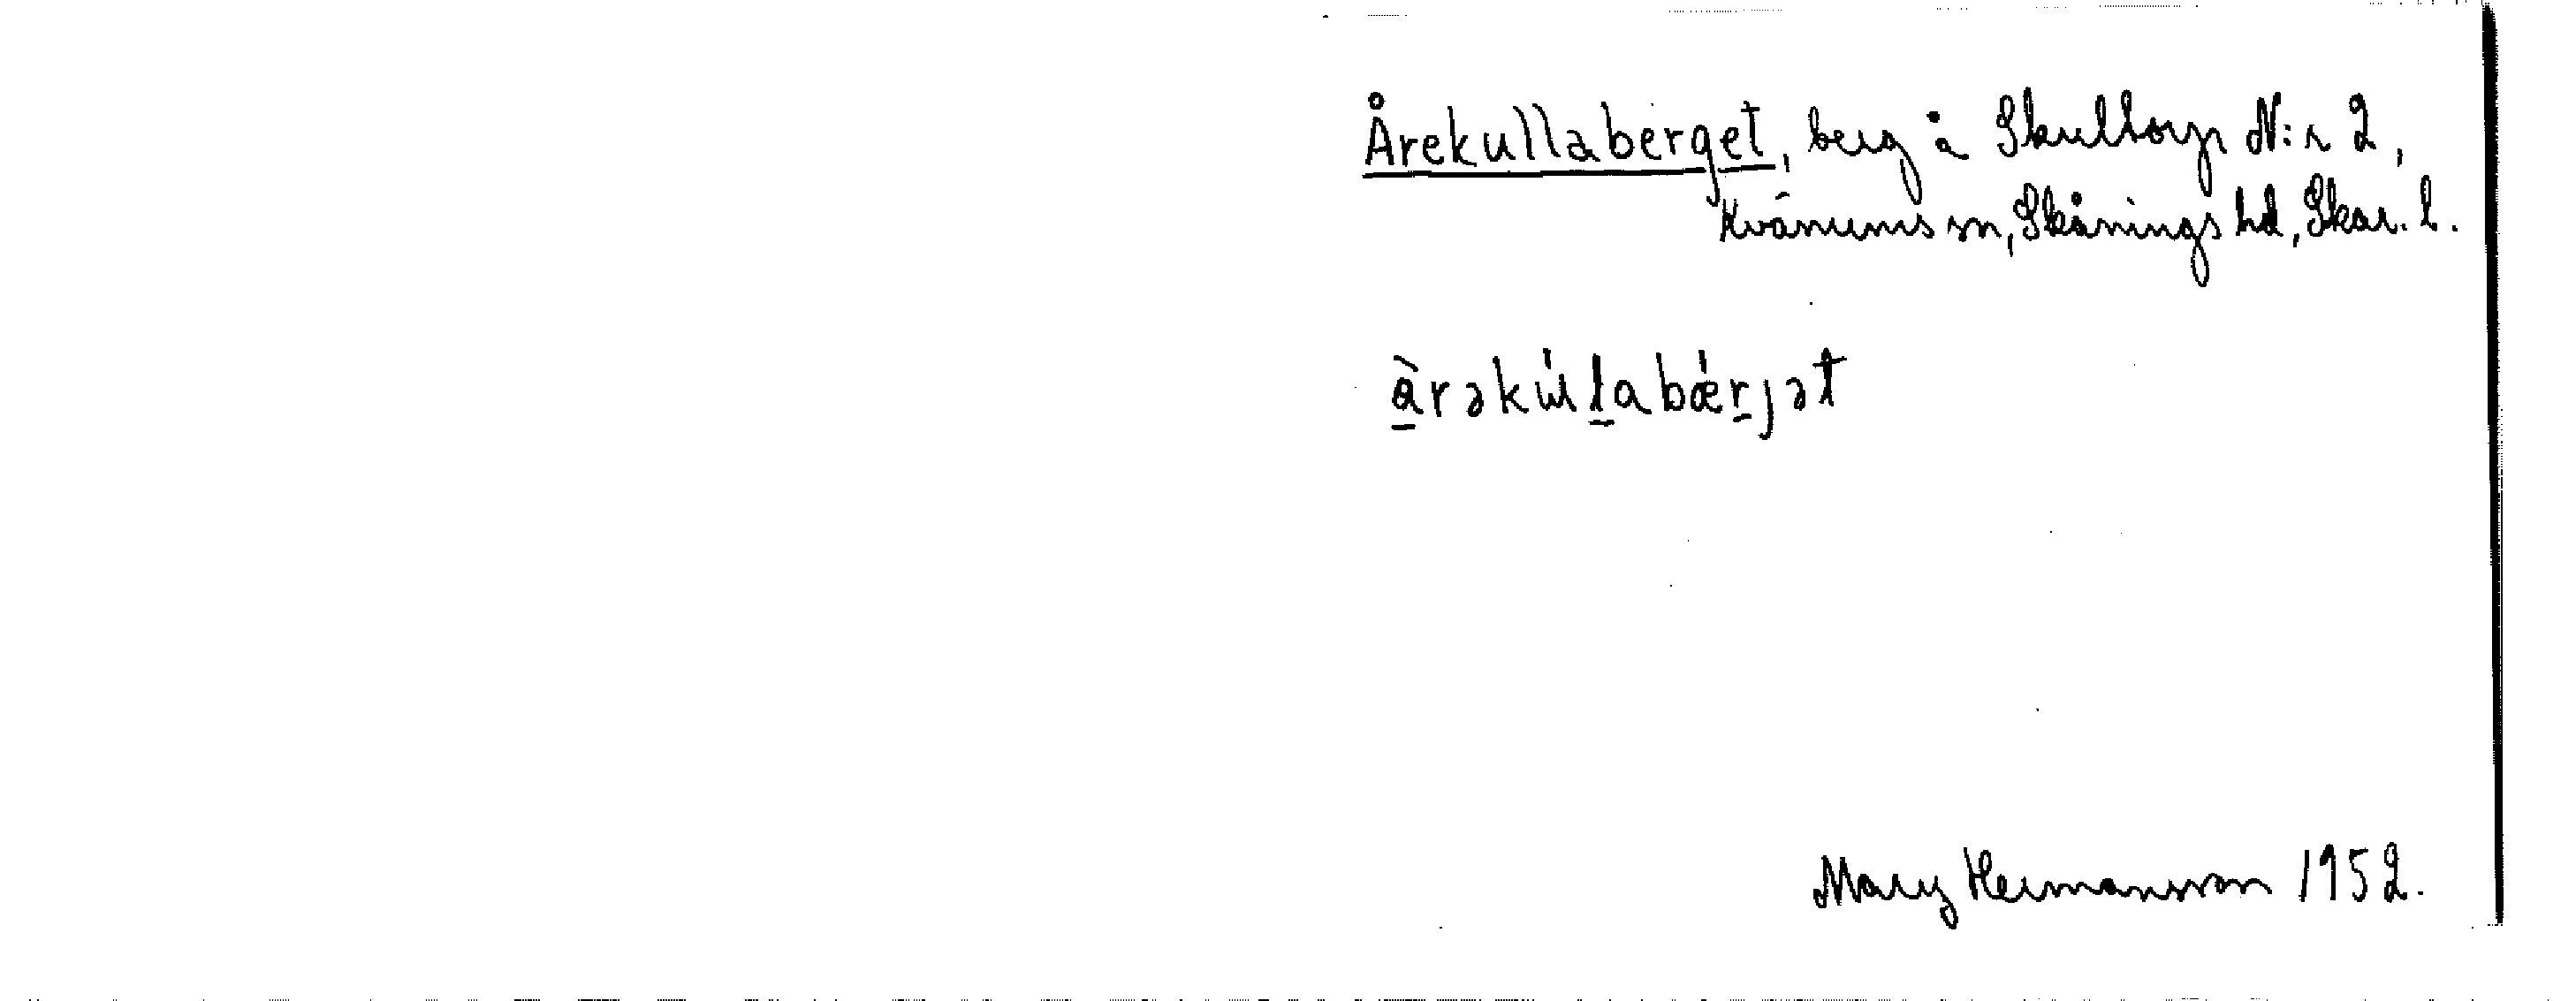 Årekullaberget, berg å Skulltorp N:r 2,
Kvänums sn, Skånings hd, Skar. l.
å̱̀rəkúḻabǽṟjət
Mary Hermansson 1952.